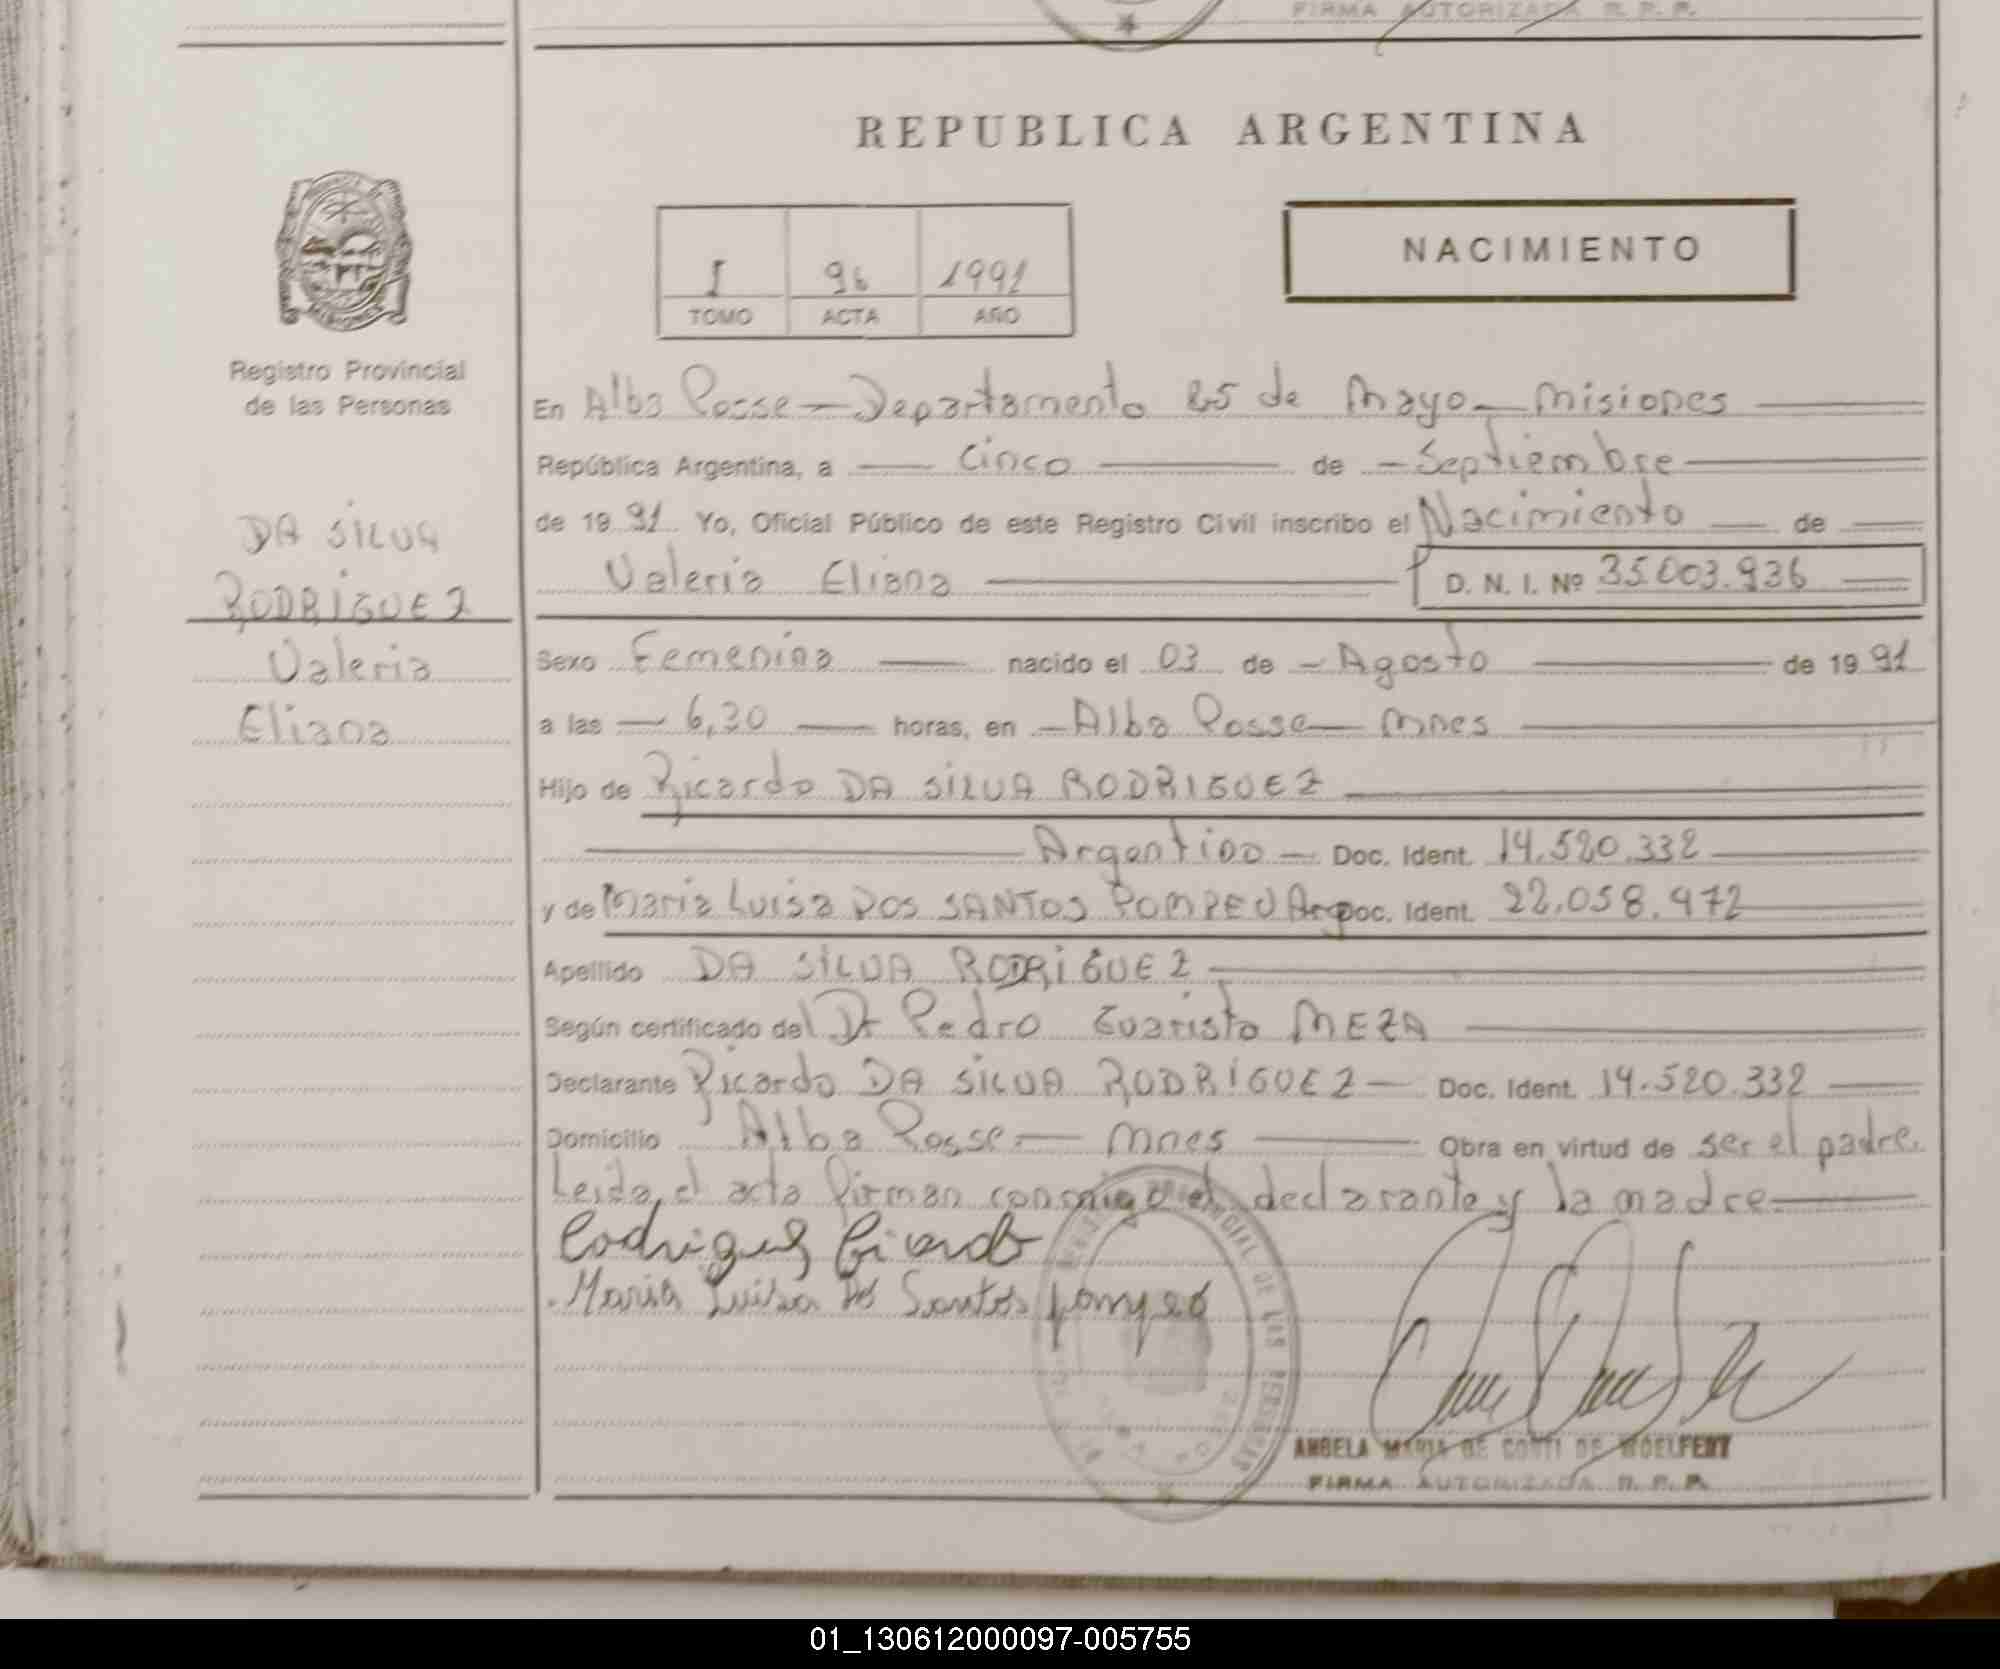 FIRMA AUTORIZADA R. P. P.
REPUBLICA ARGENTINA
I 96 1991
TOMO ACTA AÑO
NACIMIENTO
Registro Provincial
de las Personas
DA SILVA
RODRIGUEZ
Valeria
Eliana
En Alba Posse - Departamento 25 de Mayo - Misiones
República Argentina, a Cinco de Septiembre
de 19 91 Yo, Oficial Público de este Registro Civil inscribo el Nacimiento de
Valeria Eliana D. N. I. Nº 35.003.936
Sexo Femenina nacido el 03 de Agosto de 19 91
a las 6,30 horas, en Alba Posse - Mnes
Hijo de Ricardo DA SILVA RODRIGUEZ
Argentino Doc. Ident. 14.520.332
y de Maria Luisa DOS SANTOS POMPEU Arg Doc. Ident. 22.058.472
Apellido DA SILVA RODRIGUEZ
Según certificado del Dr Pedro Evaristo MEZA
Declarante Ricardo DA SILVA RODRIGUEZ Doc. Ident. 14.520.332
Domicilio Alba Posse - Mnes Obra en virtud de ser el padre.
Leida el acta firman conmigo el declarante y la madre
Rodriguez Ricardo
Maria Luisa dos Santos Pompeo
PROVINCIAL DE LAS PERSONAS
ANGELA MARIA DE CONTI DE WOELFERT
FIRMA AUTORIZADA R. P. P.
01_130612000097-005755